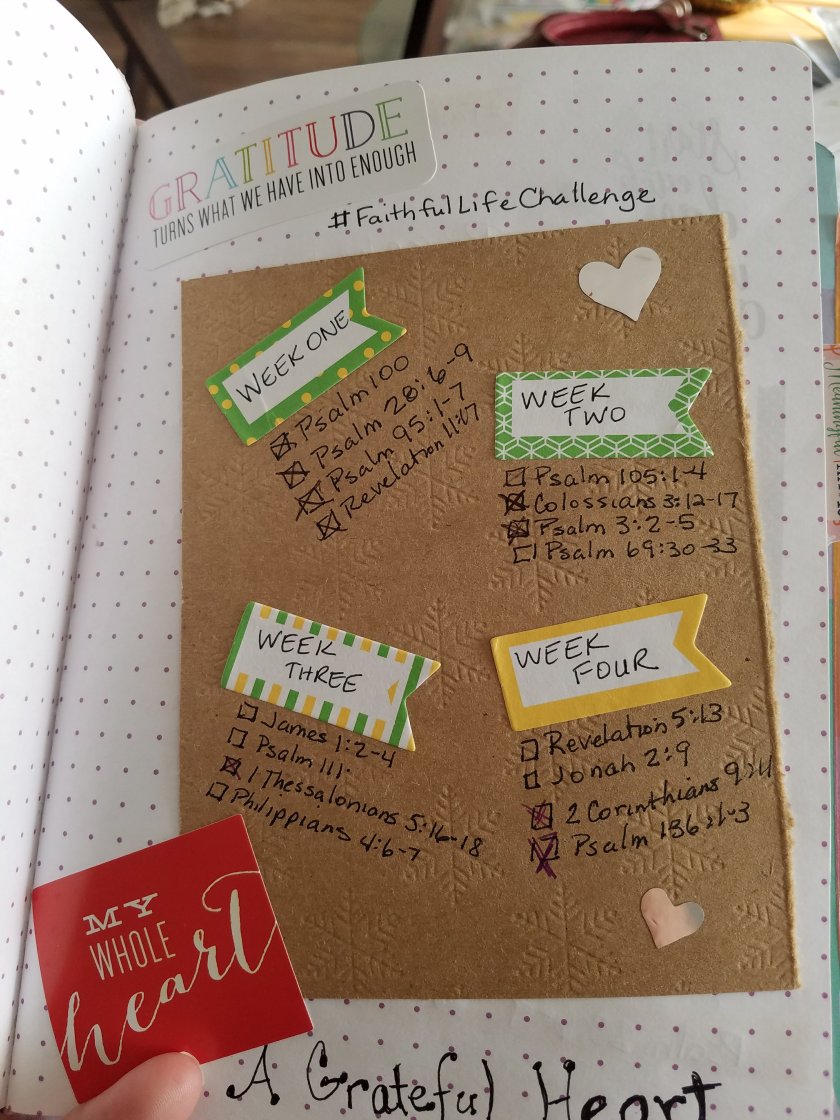 GRATITUDE
TURNS WHAT WE HAVE INTO ENOUGH
#FaithfulLifeChallenge
WEEK ONE
Psalm 100
Psalm 28:6-9
Psalm 95:1-7
Revelation 11:17
WEEK
TWO
Psalm 105:1-4
Colossians 3:12-17
Psalm 3:2-5
Psalm 69:30-33
WEEK
THREE
James 1:2-4
Psalm 111
1 Thessalonians 5:16-18
Philippians 4:6-7
WEEK
FOUR
Revelation 5:13
Jonah 2:9
2 Corinthians 9:11
Psalm 136:1-3
MY
WHOLE
heart
A Grateful Heart